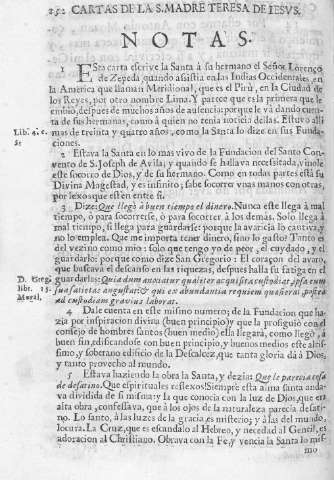 252 CARTAS DE LA S. MADRE TERESA DE IESVS.
NOTAS.
1 ESta carta escrive la Santa à su hermano el Señor Lorenço
de Zepeda, quando assistia en las Indias Occidentales, en
la America que llaman Meridional, que es el Pirù, en la Ciudad de
los Reyes, por otro nombre Lima. Y parece que es la primera que le
embiò, despues de muchos años de ausencia; porque le và dando cuen-
ta de sus hermanas, como à quien no tenia noticia dellas. Estuvo alli
mas de treinta y quatro años, como la Santa lo dize en sus Funda-
ciones.
2 Estava la Santa en lo mas vivo de la Fundacion del Santo Con-
vento de S. Joseph de Avila; y quando se hallava necessitada, vinole
este socorro de Dios, y de su hermano. Como en todas partes està su
Divina Magestad, y es infinito; sabe socorrer vnas manos con otras,
por lexos que estèn entre si.
3 Dize: Que llegò à buen tiempo el dinero. Nunca este llega à mal
tiempo, ò para socorrerse, ò para socorrer à los demàs. Solo llega à
mal tiempo, si llega para guardarse: porque la avaricia lo cautiva, y
no lo emplea. Que me importa tener dinero, sino lo gasto? Tonto es
del vezino como mio: solo que tengo yo de peor, el cuydado, y el
guardarlo: porque como dize San Gregorio: El coraçon del avaro,
que buscava el descanso en las riquezas, despues halla su fatiga en el
guardarlas:
D. Greg.
libr. 15.
Moral.
4 Dale cuenta en este mismo numero; de la Fundacion que ha-
zia por inspiracion divina (buen principio) y que la prosiguiò con el
consejo de hombres santos (buen medio) ella llegarà, como llegò, à
buen fin, edificandose con buen principio, y buenos medios este altis-
simo, y soberano edificio de la Descalcez, que tanta gloria dà à Dios,
y tanto provecho al mundo.
5 Estava haziendo la obra la Santa, y dezia: Que le parecia cosa
de desatino. Que espirituales reflexos! Siempre està alma santa anda-
va dividida de si misma: y la que conocia con la luz de Dios, que era
alta obra, confessava, que à los ojos de la naturaleza parecia desati-
no. Lo santo, à las luzes de la gracia, es misterio; y à las del mundo,
locura. La Cruz, que es escandalo al Hebreo, y necedad al Gentil, es
adoracion al Christiano. Obrava con la Fe, y vencia la Santa lo mis-
mo